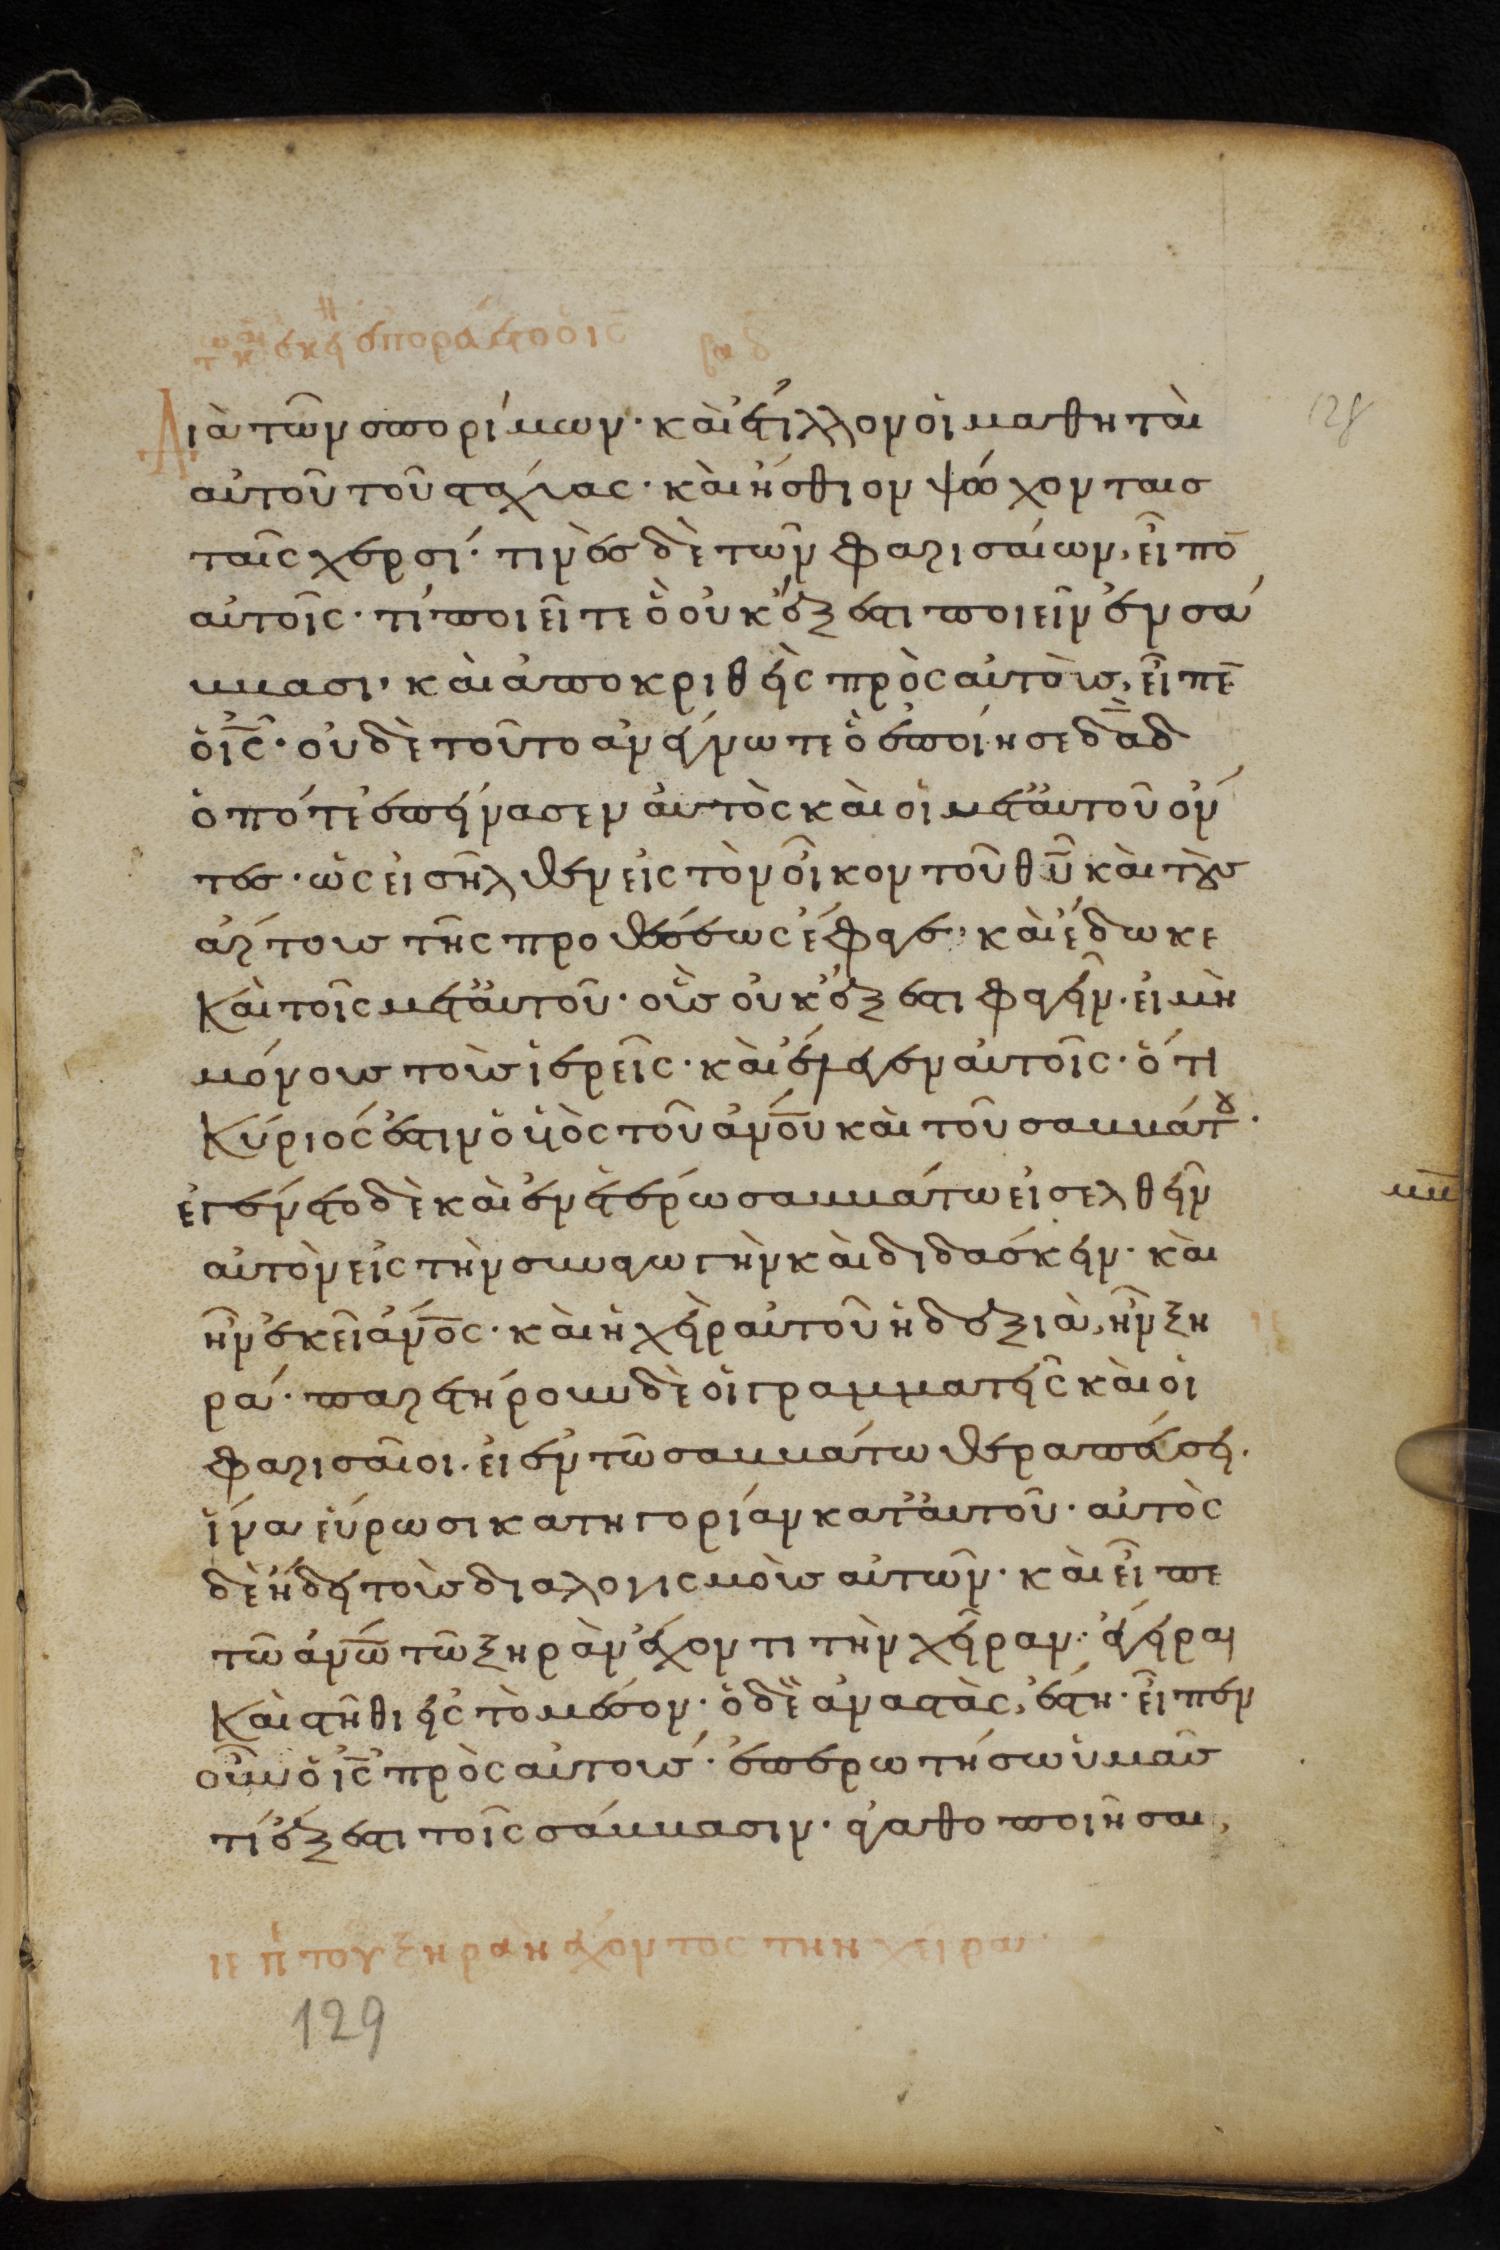 τῶ καιρῶ ἐκεί ἐπορεύετο ὁ ις
128
Διὰ τῶν σπορίμων· καὶ ἔτιλλον οἱ μαθηταὶ
αὐτοῦ τοὺς στάχυας· καὶ ἤσθιον ψώχοντες
ταῖς χερσί· τινὲς δὲ τῶν φαρισαίων, εἶπον
αὐτοῖς· τί ποιεῖτε ὃ οὐκ ἔξεστι ποιεῖν ἐν σά
ββασι· καὶ ἀποκριθεὶς πρὸς αὐτοὺς, εἶπεν
ὁ ις· οὐδὲ τοῦτο ἀνέγνωτε ὃ ἐποίησε δαδ
ὁπότε ἐπείνασεν αὐτὸς καὶ οἱ μετ αὐτοῦ ὄν
τες· ὡς εἰσῆλθεν εἰς τὸν οἶκον τοῦ θυ καὶ τοὺς
ἄρτους τῆς προθέσεως ἔφαγε· καὶ ἔδωκε
καὶ τοῖς μετ αὐτοῦ· οὓς οὐκ ἔξεστι φαγεῖν· εἰ μὴ
μόνους τοὺς ἱερεῖς· καὶ ἔλεγεν αὐτοῖς· ὅτι
Κύριός ἐστιν ὁ υἱὸς τοῦ ανου καὶ τοῦ σαββάτου·
ἐγένετο δὲ καὶ ἐν ἑτέρω σαββάτω εἰσελθεῖν
αὐτὸν εἰς τὴν συναγωγὴν καὶ διδάσκειν· καὶ
ἦν ἐκεῖ ανος· καὶ ἡ χεὶρ αὐτοῦ ἡ δεξιὰ, ἦν ξη
ρά· παρετήρουν δὲ οἱ γραμματεῖς καὶ οἱ
φαρισαῖοι· εἰ ἐν τῶ σαββάτω θεραπεύσει·
ἵνα εὕρωσι κατηγορίαν κατ αὐτοῦ· αὐτὸς
δὲ ἤδει τοὺς διαλογισμοὺς αὐτῶν· καὶ εἶπε
τῶ ανω τῶ ξηρὰν ἔχοντι τὴν χεῖραν· ἔγειραι
καὶ στῆθι εἰς τὸ μέσον· ὁ δὲ ἀναστὰς, ἔστη· εἶπεν
οὖν ὁ ις πρὸς αὐτούς· ἐπερωτήσω ὑμᾶς
τί ἔξεστι τοῖς σάββασιν· ἀγαθοποιῆσαι,
ιε π τοῦ ξηρὰν ἔχοντος τὴν χεῖρα·
129